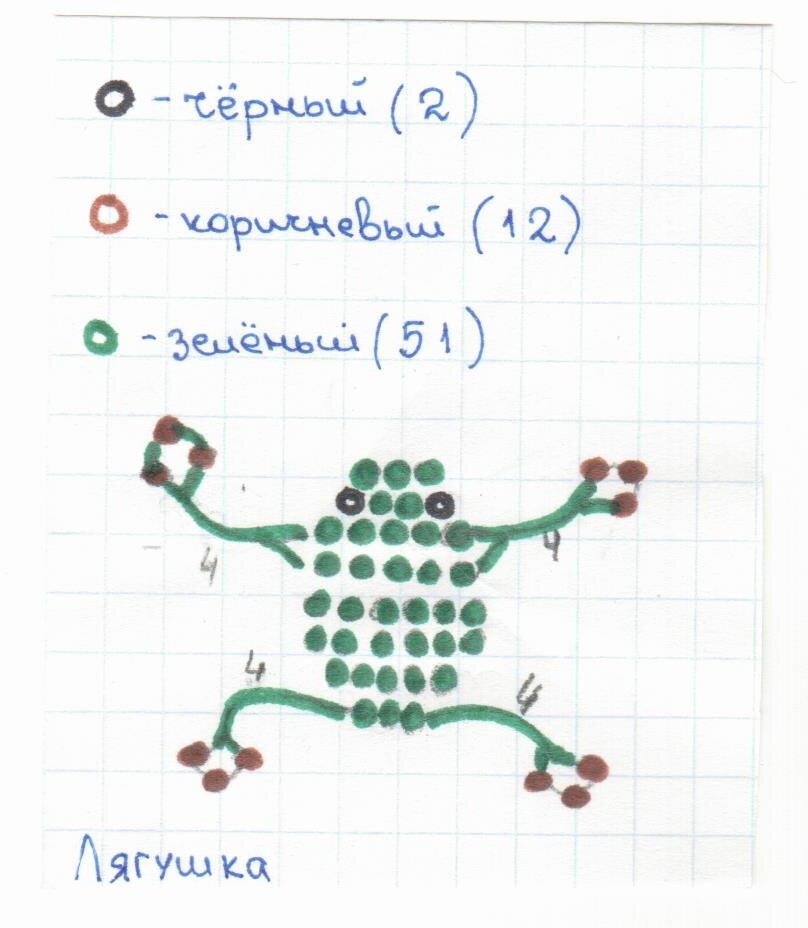 - чёрный (2)
- коричневый (12)
- зелёный (51)
4
4
4
4
Лягушка